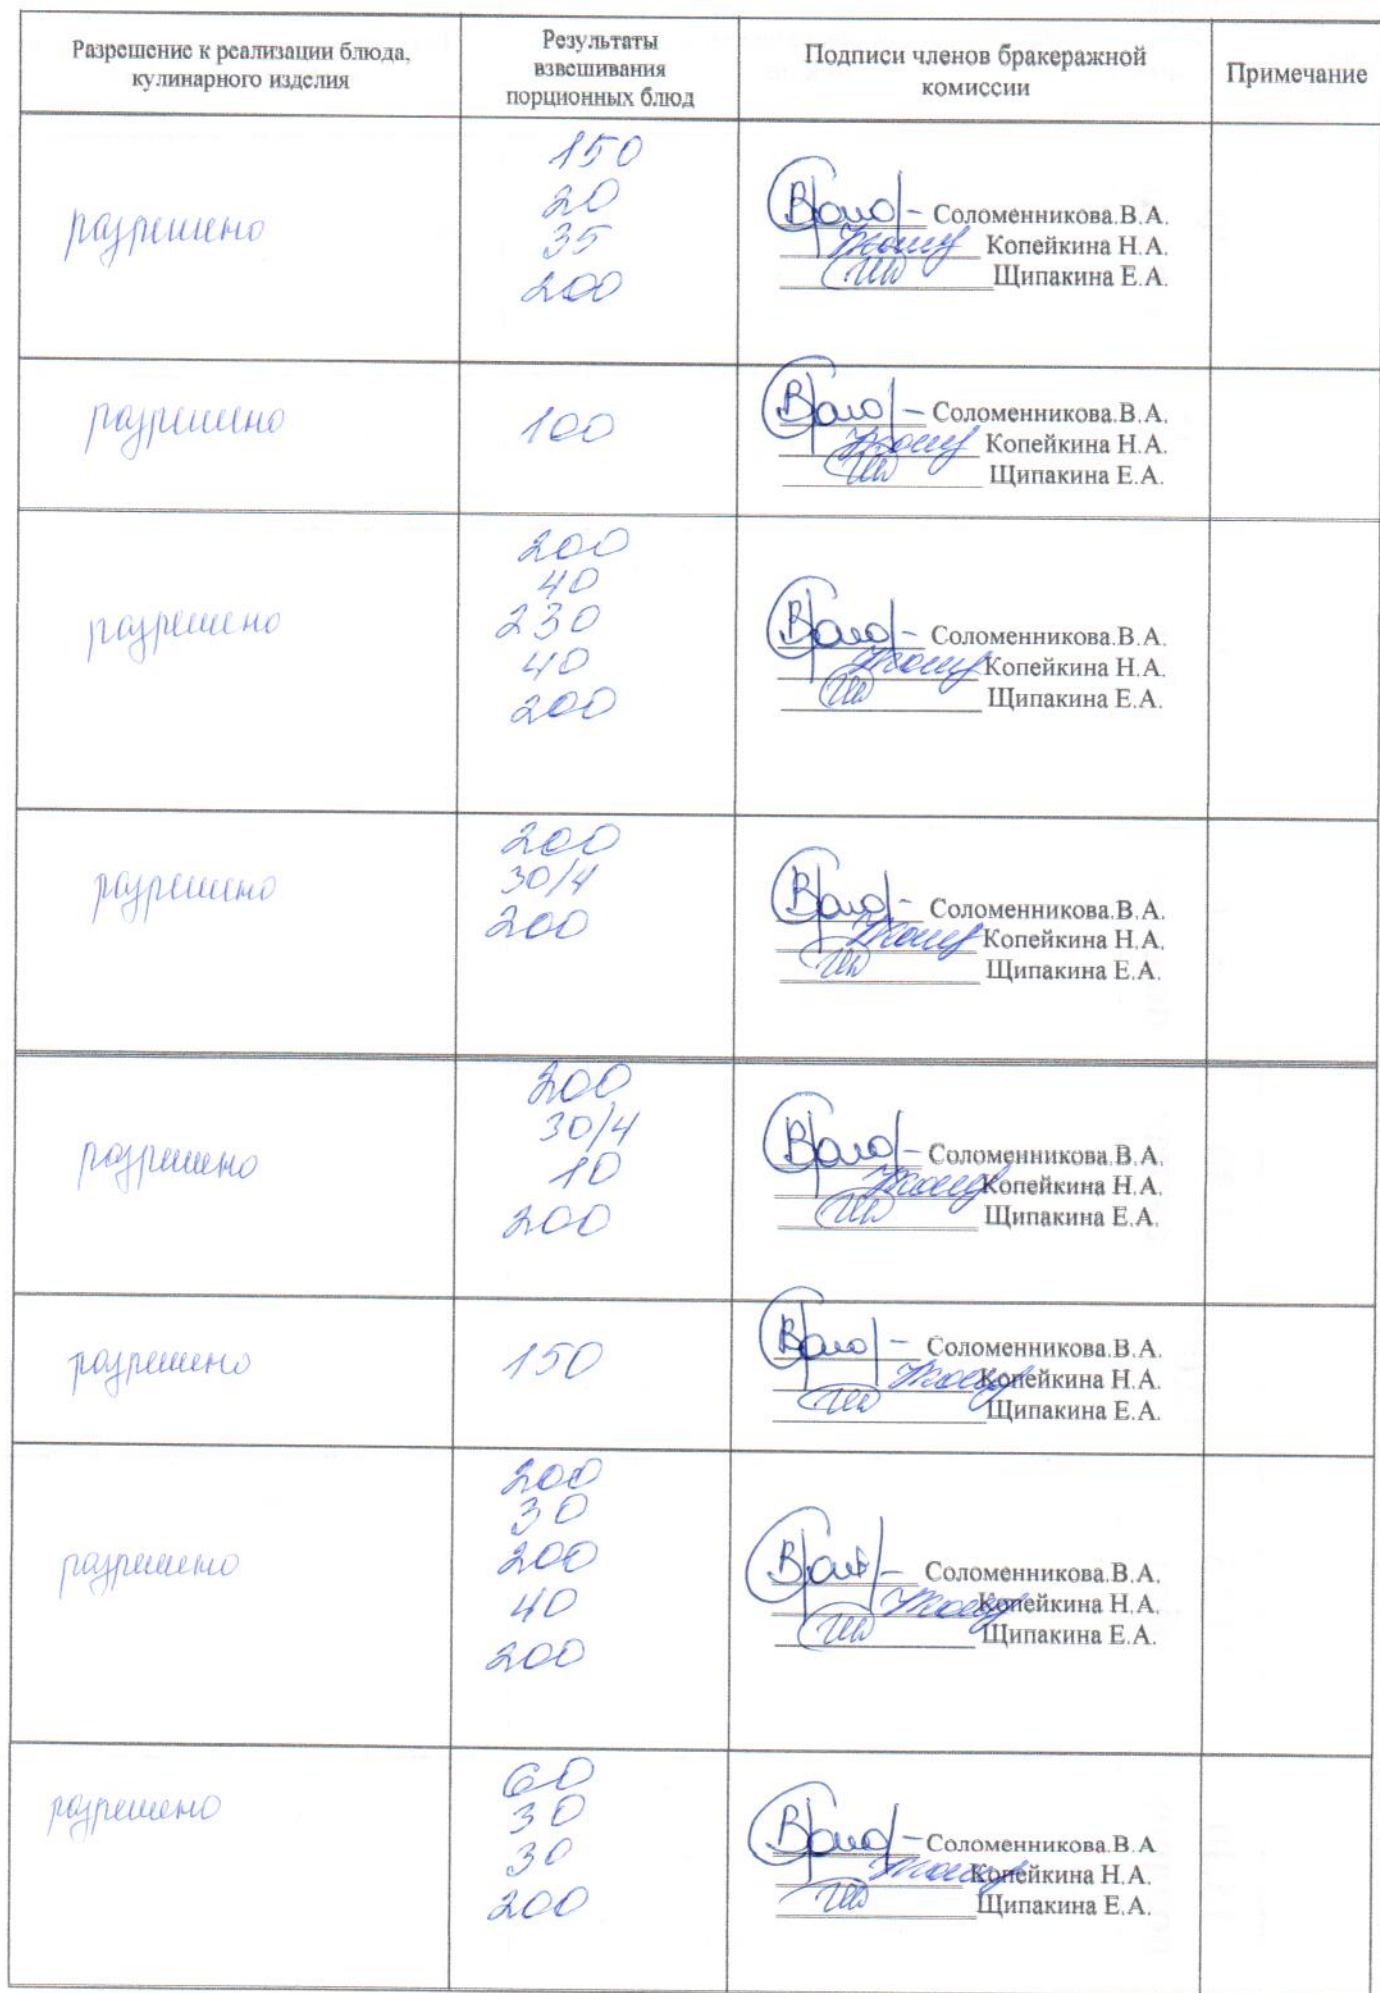 Разрешение к реализации блюда,
кулинарного изделия
Результаты
взвешивания
порционных блюд
Подписи членов бракеражной
комиссии
Примечание
разрешено
150
20
35
200
Соломенникова.В.А.
Копейкина Н.А.
Щипакина Е.А.
разрешено
100
Соломенникова.В.А.
Копейкина Н.А.
Щипакина Е.А.
разрешено
200
40
230
40
200
Соломенникова.В.А.
Копейкина Н.А.
Щипакина Е.А.
разрешено
200
30/4
200
Соломенникова.В.А.
Копейкина Н.А.
Щипакина Е.А.
разрешено
200
30/4
10
200
Соломенникова.В.А.
Копейкина Н.А.
Щипакина Е.А.
разрешено
150
Соломенникова.В.А.
Копейкина Н.А.
Щипакина Е.А.
разрешено
200
30
200
40
200
Соломенникова.В.А.
Копейкина Н.А.
Щипакина Е.А.
разрешено
60
30
30
200
Соломенникова.В.А
Копейкина Н.А.
Щипакина Е.А.